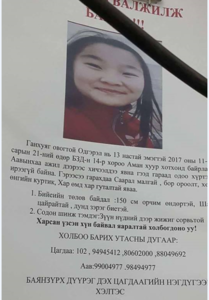 ВАЛЖИЛЖ
Ганхуяг овогтой Одгэрэл нь 13 настай эмэгтэй 2017 оны 11-
сарын 21-ний өдөр БЗД-н 14-р хороо Аман хуур хотхонд байрлах
Аавынхаа ажил дээрээс хичээлдээ явна гээд гараад олог хүртэл
ирээгүй байна. Гэрээсээ гарахдаа Саарал малгай , бор ороолт,
өнгийн куртик, Хар өмд хар гуталтай явав.
1. Биеийн төлөв байдал :150 см орчим өндөртэй,
цайрайтай , дунд зэрэг биетэй.
2. Содон шинж тэмдэг:Зүүн нүдний дээр жижиг сорьвтой
Харсан үзсэн хүн байвал яаралтай холбогдоно уу!
ХОЛБОО БАРИХ УТАСНЫ ДУГААР:
Цагдаа: 102 , 94945412 ,80602000 ,88049692
Аав:99004977 ,98494977
БАЯНЗҮРХ ДҮҮРЭГ ДЭХ ЦАГДААГИЙН НЭГДҮГЭЭР
ХЭЛТЭС